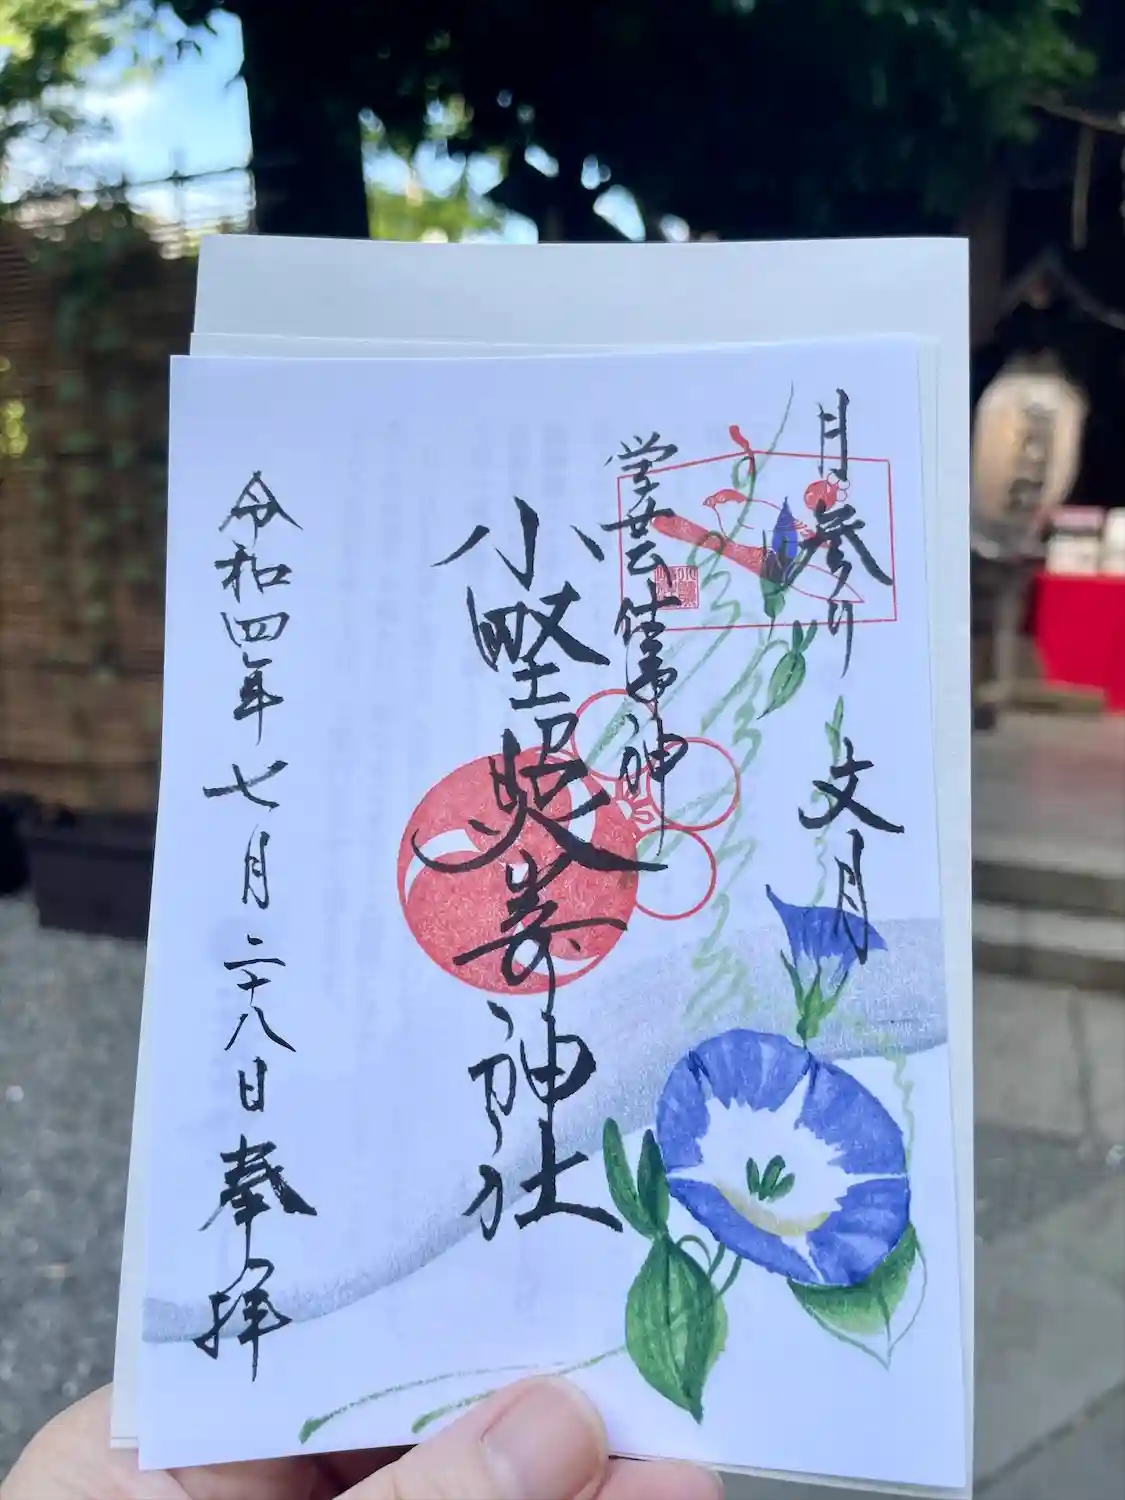 月参り 文月
学芸仕事神
小野照崎神社
令和四年七月二十八日 奉拝